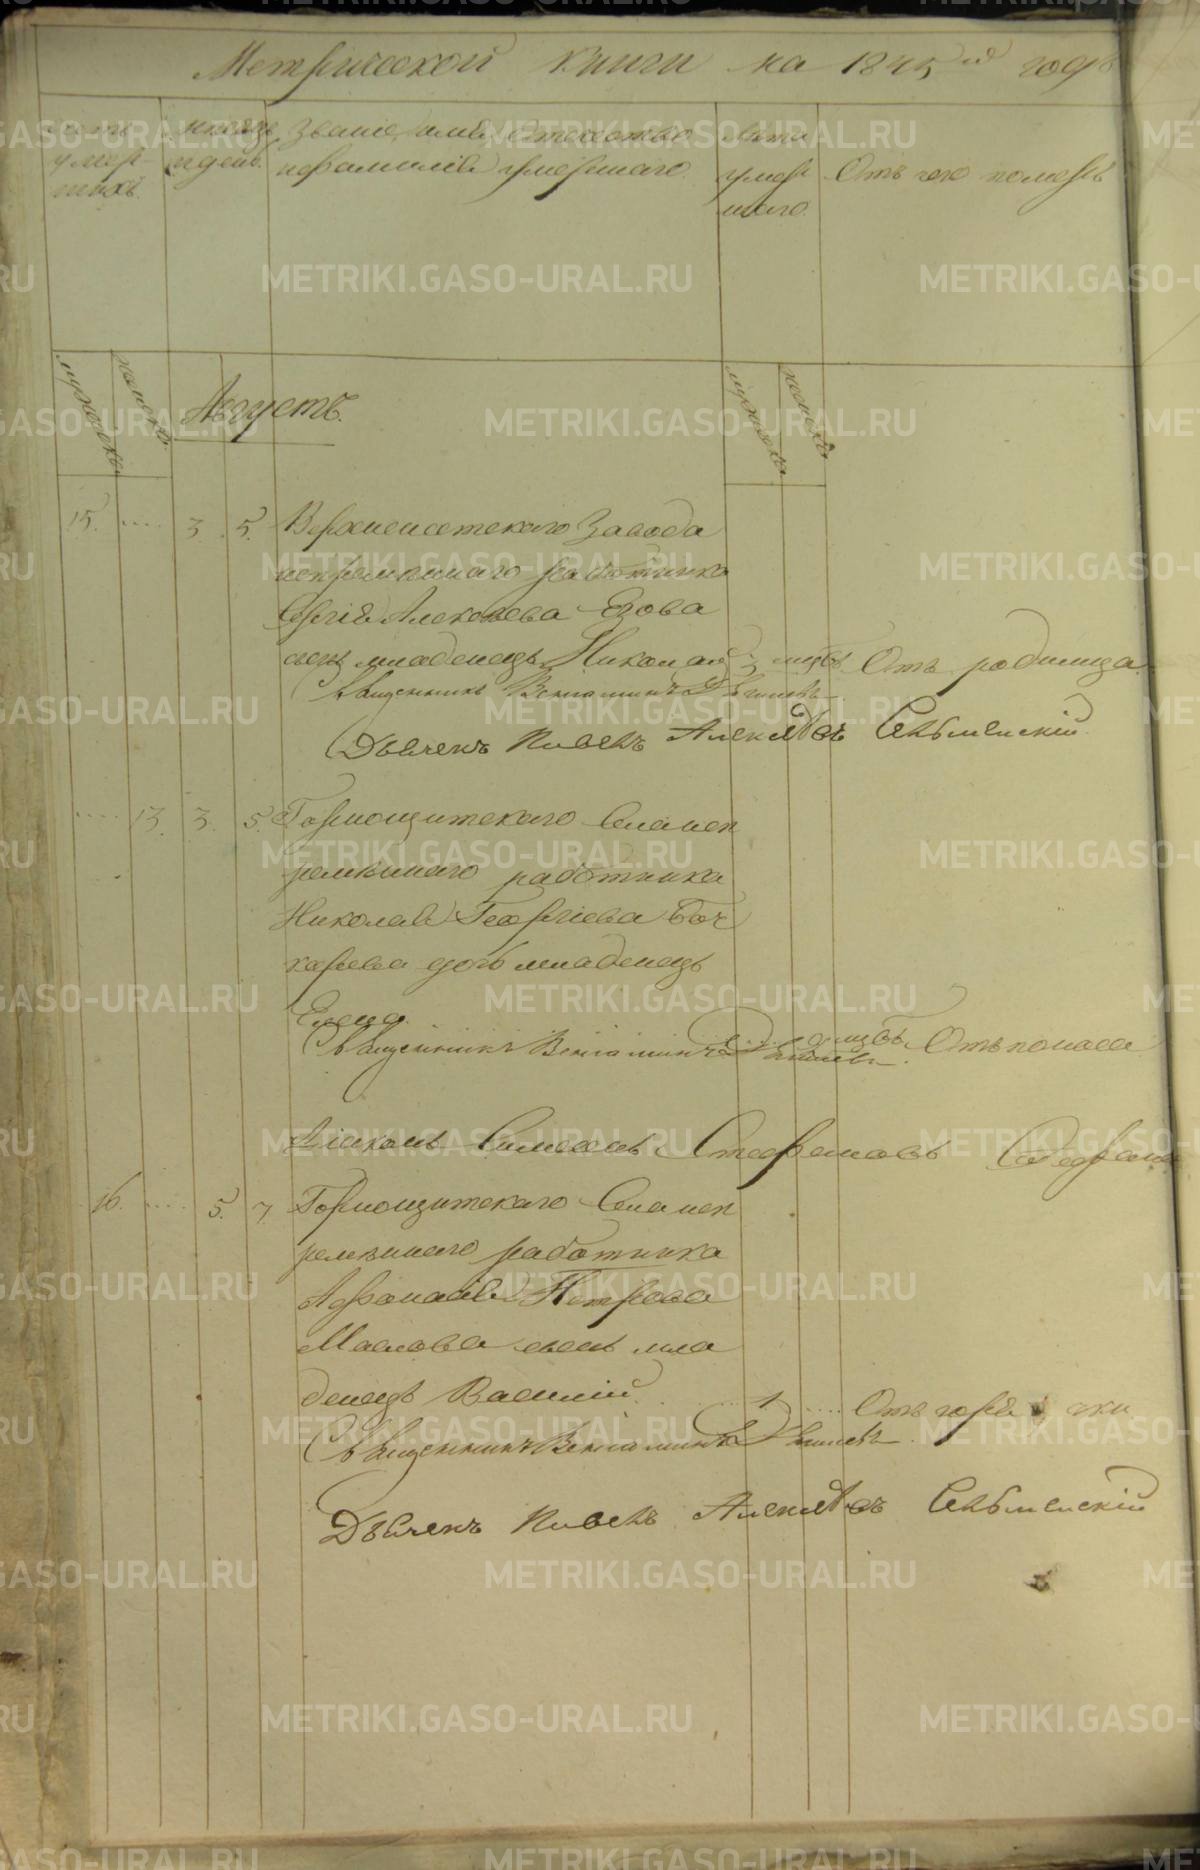 Метрической книги на 1845й годъ
Счетъ умер-шихъ.
Месяцъ и день.
Званiе, имя, отечество и фамилiя умершаго.
Лета умер шаго.
Отъ чего померъ
мужеска
женска.
Августъ.
мужеска
женска
15. .... 3. 5. Верхнеисетскаго Завода
непременнаго работника
Сергiя Алексеева Езова
сынъ младенецъ Николай 3 мцвъ. Отъ родимца.
Священникъ Венiаминъ
Дьячекъ Алексѣевъ
.... 13. 3. 5. Горнощитскаго села неп
ремѣннаго работника
Николая Георгiева Боч
карева дочь младенецъ
Елена. мцвъ. Отъ поноса
Священникъ Венiаминъ
Дiаконъ Симеонъ Стефановъ
16. .... 5. 7. Горнощитскаго села неп
ремѣннаго работника
Афонасiя Петрова
Маслова сынъ мла
денецъ Василiй. .... 1 .... Отъ горячки
Священникъ Венiаминъ
Дьячекъ Алексѣевъ
METRIKI.GASO-URAL.RU